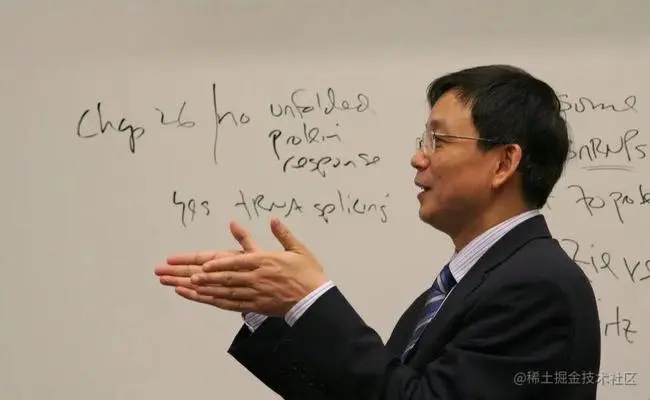 Chap 26 / no unfolded
protein
response
yes tRNA splicing
some
snRNPs
to prob
@稀土掘金技术社区